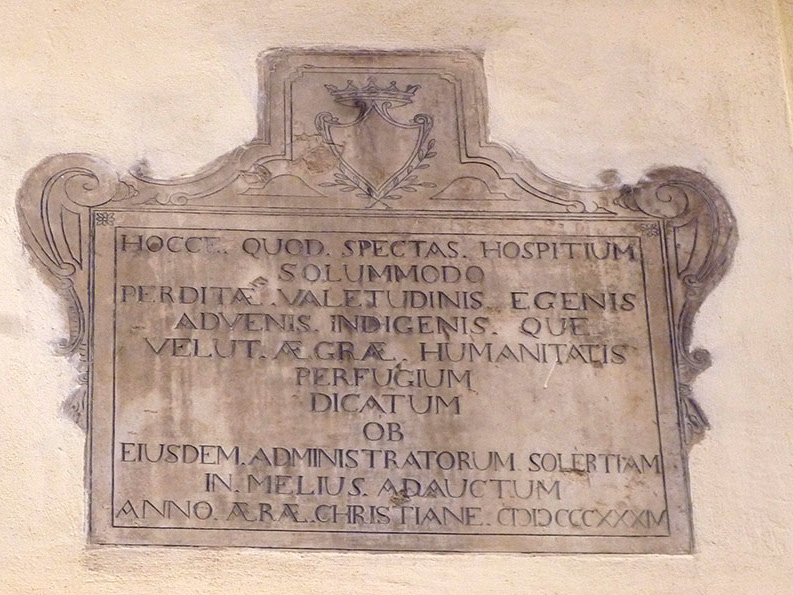 HOCCE. QUOD. SPECTAS. HOSPITIUM
SOLUMMODO
PERDITÆ. VALETUDINIS. EGENIS
ADVENIS. INDIGENIS. QUE
VELUT. ÆGRÆ. HUMANITATIS
PERFUGIUM
DICATUM
OB
EIUSDEM. ADMINISTRATORUM. SOLERTIAM
IN. MELIUS. ADAUCTUM
ANNO. ÆRÆ. CHRISTIANE.